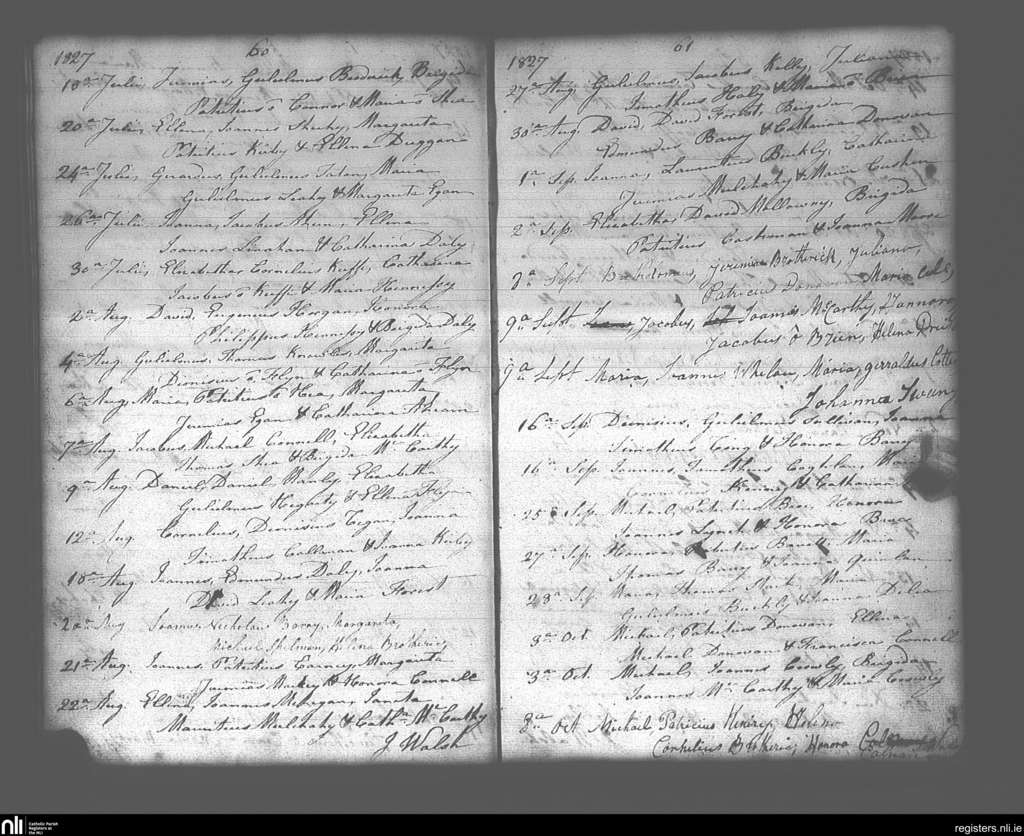 1827 60
18a Julii, Jeremias, Gulielmus Broderick, Brigida
Patritius o Connor & Maria o Shea
20a Julii, Ellena, Joannes Sheehy, Margarita
Patritius Kirby & Ellena Duggan
24a Julii, Gerardus, Gulielmus Maria
Gulielmus Leahy & Margarita Egan
26a Julii Joanna, Jacobus Ahern, Ellena
Joannes Linehan & Catharina Daly
30a Julii, Elizabetha, Cornelius Keeffe, Catharina
Jacobus o Keeffe & Maria Hennessy
2a Aug. David, Eugenius Horgan, Honora
Philippus Hennessy & Brigida Daly
4a Aug. Gulielmus, Thomas Knowles, Margarita
Dionisius o Flyn & Catharina o Flyn
6a Aug. Maria, Patritius o Hea, Margarita
Jeremias Egan & Catharina Ahearn
7a Aug. Jacobus, Michael Connell, Elizabetha
Thomas Shea & Brigida Mc Carthy
9a Aug. Daniel, Daniel Manly, Elizabetha
Gulielmus Hegarty & Ellena Flyn
12a Aug. Cornelius, Dionisius Joanna
Timotheus Callinan & Joanna Kirby
18a Aug Joannes, Edmundus Daly, Joanna
David Leahy & Maria Forest
20a Aug Joannes, Nicholaus Margarita,
Michael Shelmon, Helena Brotherick
21a Aug. Joannes, Patritius Carney, Margarita
Jeremias & Honora Connell
22a Aug. Ellena, Joannes Mehegan,
Mauritius Mulchahy & Cath. Mc Carthy
J Walsh
1827 61
27a Aug. Gulielmus, Jacobus Kelly, Juliana
Timotheus & Maria o
30a Aug. David, David Forest, Brigida
Edmundus Barry & Catharina Donovan
1a Sep. Joanna, Laurentius Buckly, Catharina
Jeremias Mulchahy & Maria Cashin
2a Sep. Elizabetha, David Mollowny, Brigida
Patritius Cashman & Joanna Moore
2a Sept Bartholomeus, Jeremia Brotherick, Juliana,
Patricius Donovan Maria Cole,
9a Sept Jacobus, Joannes McCarthy, Honnora,
Jacobus o Brien, Helena
9a Sept Maria, Joannis Whelan, Maria, gerraldus
Johanna Sweeny
16a Sep. Dionisius, Gulielmus Sullivan, Joanna
Timotheus & Honora Barry
16a Sep. Joannes, Timotheus Coghlan, Maria
Cornelius & Catharina
25a Sep. Michael, Patritius Honora
Joannes Lynch & Honora
27a Sep. Honora Patritius Maria
Thomas Barry & Joanna Quinlan
28a Sep Maria, Thomas Maria
Gulielmus Buckly & Joanna
3a Oct Michael, Patritius Donovan, Ellena
Michael Donovan & Francisca Connell
3a Oct. Michael, Joannes Crowly, Brigida
Joannes Mc Carthy & Maria Crowly
8a Oct Michael, Patricius Helina
Cornelius Brotherick, Honora
nli Catholic Parish Registers at the NLI
registers.nli.ie